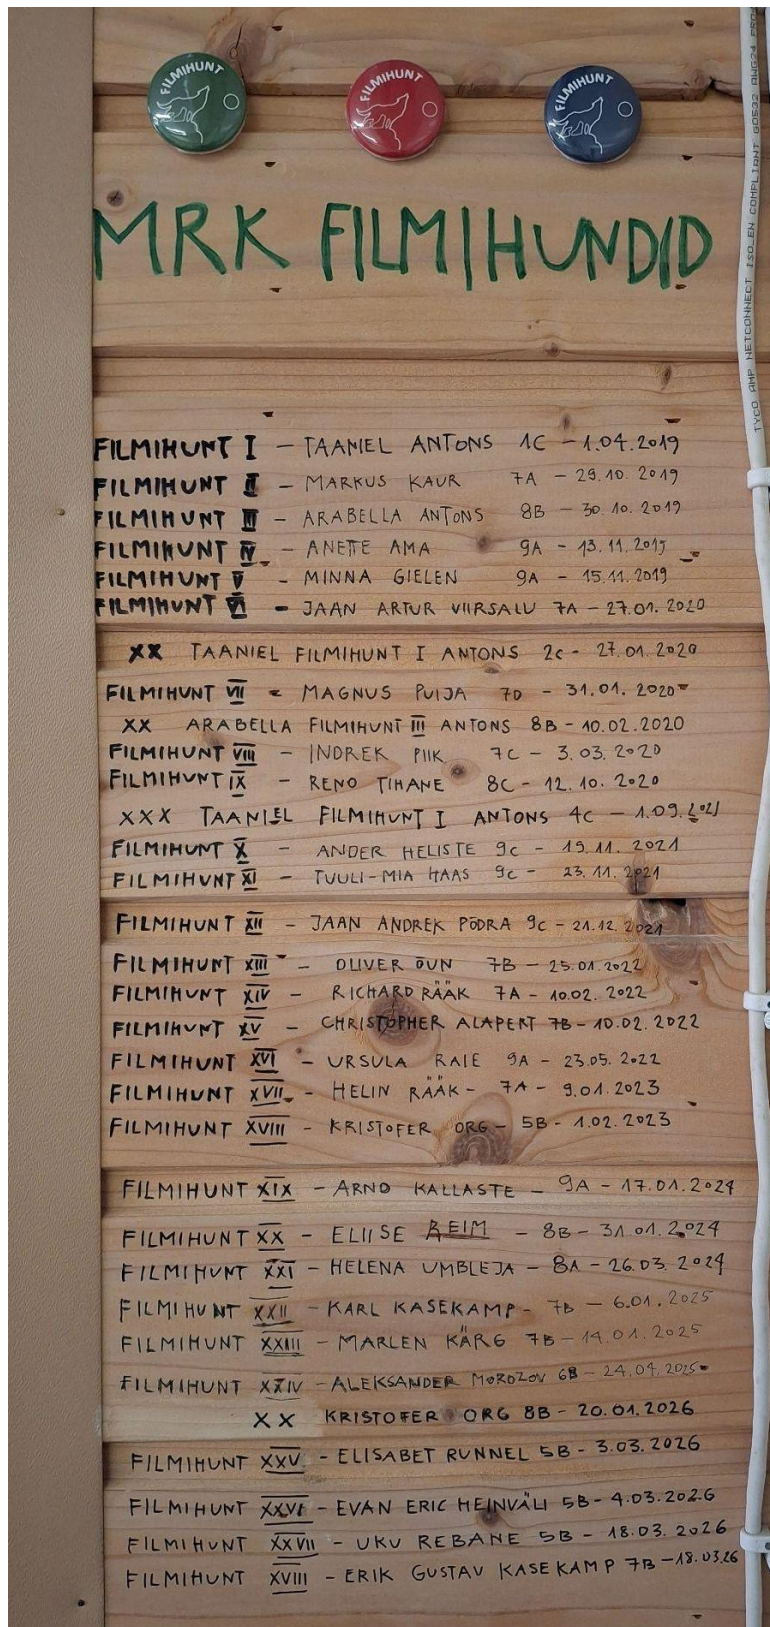 FILMIHUNT
FILMIHUNT
FILMIHUNT
MRK FILMIHUNDID
FILMIHUNT I – TAANIEL ANTONS 1C – 1.04.2019
FILMIHUNT II – MARKUS KAUR 7A – 29.10.2019
FILMIHUNT III – ARABELLA ANTONS 8B – 30.10.2019
FILMIHUNT IV – ANETTE AMA 9A – 13.11.2019
FILMIHUNT V – MINNA GIELEN 9A – 15.11.2019
FILMIHUNT VI – JAAN ARTUR VIIRSALU 7A – 27.01.2020
XX TAANIEL FILMIHUNT I ANTONS 2C – 27.01.2020
FILMIHUNT VII – MAGNUS PUIJA 7D – 31.01.2020
XX ARABELLA FILMIHUNT III ANTONS 8B – 10.02.2020
FILMIHUNT VIII – INDREK PIIK 7C – 3.03.2020
FILMIHUNT IX – RENO TIHANE 8C – 12.10.2020
XXX TAANIEL FILMIHUNT I ANTONS 4C – 1.09.2021
FILMIHUNT X – ANDER HELISTE 9C – 19.11.2021
FILMIHUNT XI – TUULI-MIA HAAS 9C – 23.11.2021
FILMIHUNT XII – JAAN ANDREK PÕDRA 9C – 21.12.2021
FILMIHUNT XIII – OLIVER ÕUN 7B – 25.01.2022
FILMIHUNT XIV – RICHARD RÄÄK 7A – 10.02.2022
FILMIHUNT XV – CHRISTOPHER ALAPERT 7B – 10.02.2022
FILMIHUNT XVI – URSULA RAIE 9A – 23.05.2022
FILMIHUNT XVII – HELIN RÄÄK – 7A – 9.01.2023
FILMIHUNT XVIII – KRISTOFER ORG – 5B – 1.02.2023
FILMIHUNT XIX – ARNO KALLASTE – 9A – 17.01.2024
FILMIHUNT XX – ELIISE REIM – 8B – 31.01.2024
FILMIHUNT XXI – HELENA UMBLEJA – 8A – 26.03.2024
FILMIHUNT XXII – KARL KASEKAMP – 7B – 6.01.2025
FILMIHUNT XXIII – MARLEN KÄRG 7B – 14.01.2025
FILMIHUNT XXIV – ALEKSANDER MOROZOV 6B – 24.04.2025
XX KRISTOFER ORG 8B – 20.01.2026
FILMIHUNT XXV – ELISABET RUNNEL 5B – 3.03.2026
FILMIHUNT XXVI – EVAN ERIC HEINVÄLI 5B – 4.03.2026
FILMIHUNT XXVII – UKU REBANE 5B – 18.03.2026
FILMIHUNT XVIII – ERIK GUSTAV KASEKAMP 7B – 18.03.26
TYCO AMP NETCONNECT ISO_EN COMPLIANT G0532 AWG24